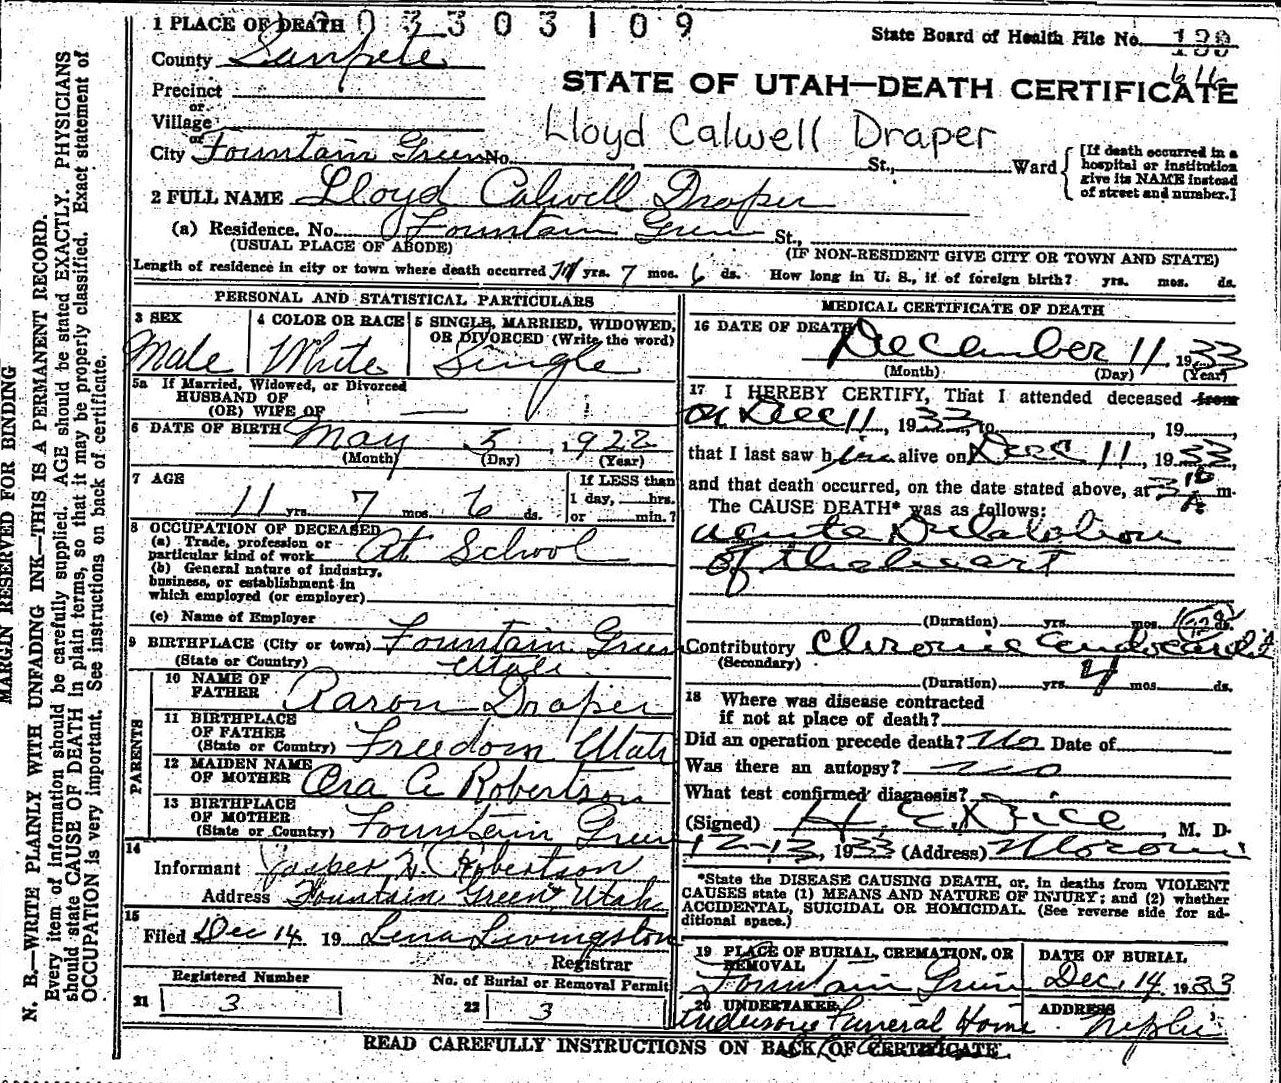 1 PLACE OF DEATH 003303109
State Board of Health File No.
County Sanpete
STATE OF UTAH—DEATH CERTIFICATE
Precinct
or
Village
or
Lloyd Calwell Draper
City Fountain Green No. St., Ward
[If death occurred in a
hospital or institution
give its NAME instead
of street and number.]
2 FULL NAME Lloyd Calwell Draper
(a) Residence. No. Fountain Green St.,
(USUAL PLACE OF ABODE) (IF NON-RESIDENT GIVE CITY OR TOWN AND STATE)
Length of residence in city or town where death occurred 11 yrs. 7 mos. 6 ds. How long in U. S., if of foreign birth? yrs. mos. ds.
PERSONAL AND STATISTICAL PARTICULARS
3 SEX 4 COLOR OR RACE 5 SINGLE, MARRIED, WIDOWED,
OR DIVORCED (Write the word)
Male White Single
5a If Married, Widowed, or Divorced
HUSBAND OF
(OR) WIFE OF —
6 DATE OF BIRTH May 5, 1922
(Month) (Day) (Year)
7 AGE If LESS than
1 day, hrs.
11 yrs. 7 mos. 6 ds. or min.?
8 OCCUPATION OF DECEASED
(a) Trade, profession or
particular kind of work At School
(b) General nature of industry,
business, or establishment in
which employed (or employer)
(c) Name of Employer
9 BIRTHPLACE (City or town) Fountain Green
(State or Country) Utah
PARENTS
10 NAME OF
FATHER Aaron Draper
11 BIRTHPLACE
OF FATHER
(State or Country) Freedom Utah
12 MAIDEN NAME
OF MOTHER Ora A Robertson
13 BIRTHPLACE
OF MOTHER
(State or Country) Fountain Green
14
Informant Jasper Robertson
Address Fountain Green Utah
15
Filed Dec 14 19 Lena Livingston
Registrar
Registered Number No. of Burial or Removal Permit
21 3 22 3
MEDICAL CERTIFICATE OF DEATH
16 DATE OF DEATH
December 11, 1933
(Month) (Day) (Year)
17 I HEREBY CERTIFY, That I attended deceased from
on Dec 11, 1933, to, 19
that I last saw him alive on Dec. 11, 1933,
and that death occurred, on the date stated above, at 3 10 A m.
The CAUSE DEATH* was as follows:
acute Dilatation
of the heart
(Duration) yrs. mos. ds.
Contributory Chronic Endocarditis
(Secondary)
(Duration) yrs. 4 mos. ds.
18 Where was disease contracted
if not at place of death?
Did an operation precede death? No Date of
Was there an autopsy? no
What test confirmed diagnosis?
(Signed) M. D.
12-13, 1933 (Address) Moroni
*State the DISEASE CAUSING DEATH, or, in deaths from VIOLENT
CAUSES state (1) MEANS AND NATURE OF INJURY; and (2) whether
ACCIDENTAL, SUICIDAL OR HOMICIDAL. (See reverse side for ad-
ditional space.)
19 PLACE OF BURIAL, CREMATION, OR
REMOVAL DATE OF BURIAL
Fountain Green Dec. 14, 1933
20 UNDERTAKER ADDRESS
Anderson Funeral Home Nephi
READ CAREFULLY INSTRUCTIONS ON BACK OF CERTIFICATE.
MARGIN RESERVED FOR BINDING
N. B.—WRITE PLAINLY WITH UNFADING INK—THIS IS A PERMANENT RECORD.
Every item of information should be carefully supplied. AGE should be stated EXACTLY. PHYSICIANS
should state CAUSE OF DEATH in plain terms, so that it may be properly classified. Exact statement of
OCCUPATION is very important. See instructions on back of certificate.